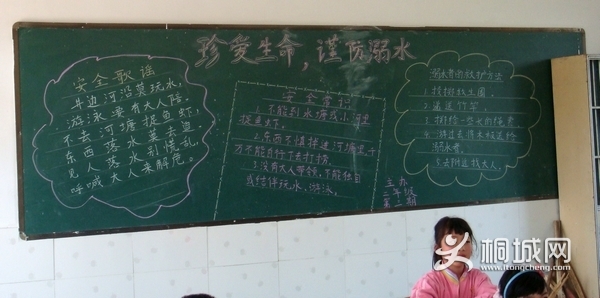 珍爱生命,谨防溺水
安全歌谣
井边河沿莫玩水,
游泳要有大人陪。
不去河塘捉鱼虾,
东西落水莫去追。
见人落水别慌乱,
呼喊大人来解危。
安全常识
1.不能到水塘或小河里
捉鱼虾。
2.东西不慎掉进河塘里,千
万不能自行下去打捞。
3.没有大人带领,不能独自
或结伴玩水、游泳。
溺水者的救护方法
1.找抛救生圈。
2.递送竹竿。
3.抛给一些长的绳索
4.游过去将木板送给
溺水者。
5.去附近找大人。
主办
三年级
第二期
桐城网
www.itongcheng.com